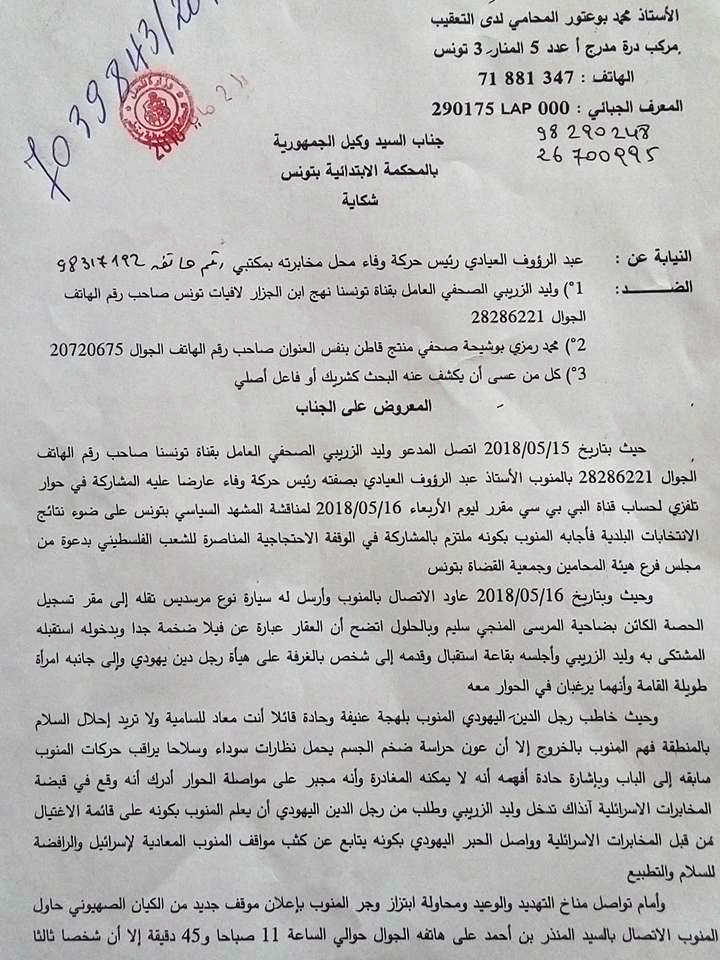 7039843/20
وزارة العدل
21 ماي 2018
الأستاذ محمد بوعتور المحامي لدى التعقيب
مركب درة مدرج أ عدد 5 المنار 3 تونس
الهاتف : 347 881 71
المعرف الجبائي : 000 LAP 290175
98290248
26700995
جناب السيد وكيل الجمهورية
بالمحكمة الابتدائية بتونس
شكاية
النيابة عن : عبد الرؤوف العيادي رئيس حركة وفاء محل مخابرته بمكتبي رقم هاتفه 98317192
الضـــــد : 1°) وليد الزريبي الصحفي العامل بقناة تونسنا نهج ابن الجزار لافيات تونس صاحب رقم الهاتف
الجوال 28286221
2°) محمد رمزي بوشيحة صحفي منتج قاطن بنفس العنوان صاحب رقم الهاتف الجوال 20720675
3°) كل من عسى أن يكشف عنه البحث كشريك أو فاعل أصلي
المعروض على الجناب
حيث بتاريخ 2018/05/15 اتصل المدعو وليد الزريبي الصحفي العامل بقناة تونسنا صاحب رقم الهاتف
الجوال 28286221 بالمنوب الأستاذ عبد الرؤوف العيادي بصفته رئيس حركة وفاء عارضا عليه المشاركة في حوار
تلفزي لحساب قناة البي بي سي مقرر ليوم الأربعاء 2018/05/16 لمناقشة المشهد السياسي بتونس على ضوء نتائج
الانتخابات البلدية فأجابه المنوب بكونه ملتزم بالمشاركة في الوقفة الاحتجاجية المناصرة للشعب الفلسطيني بدعوة من
مجلس فرع هيئة المحامين وجمعية القضاة بتونس
وحيث وبتاريخ 2018/05/16 عاود الاتصال بالمنوب وأرسل له سيارة نوع مرسديس تقله إلى مقر تسجيل
الحصة الكائن بضاحية المرسى المنجي سليم وبالحلول اتضح أن العقار عبارة عن فيلا ضخمة جدا وبدخوله استقبله
المشتكى به وليد الزريبي وأجلسه بقاعة استقبال وقدمه إلى شخص بالغرفة على هيأة رجل دين يهودي وإلى جانبه امرأة
طويلة القامة وأنهما يرغبان في الحوار معه
وحيث خاطب رجل الدين اليهودي المنوب بلهجة عنيفة وحادة قائلا أنت معاد للسامية ولا تريد إحلال السلام
بالمنطقة فهم المنوب بالخروج إلا أن عون حراسة ضخم الجسم يحمل نظارات سوداء وسلاحا يراقب حركات المنوب
سابقه إلى الباب وبإشارة حادة أفهمه أنه لا يمكنه المغادرة وأنه مجبر على مواصلة الحوار أدرك أنه وقع في قبضة
المخابرات الاسرائلية آنذاك تدخل وليد الزريبي وطلب من رجل الدين اليهودي أن يعلم المنوب بكونه على قائمة الاغتيال
من قبل المخابرات الاسرائلية وواصل الحبر اليهودي بكونه يتابع عن كثب مواقف المنوب المعادية لإسرائيل والرافضة
للسلام والتطبيع
وأمام تواصل مناخ التهديد والوعيد ومحاولة ابتزاز وجر المنوب بإعلان موقف جديد من الكيان الصهيوني حاول
المنوب الاتصال بالسيد المنذر بن أحمد على هاتفه الجوال حوالي الساعة 11 صباحا و45 دقيقة إلا أن شخصا ثالثا